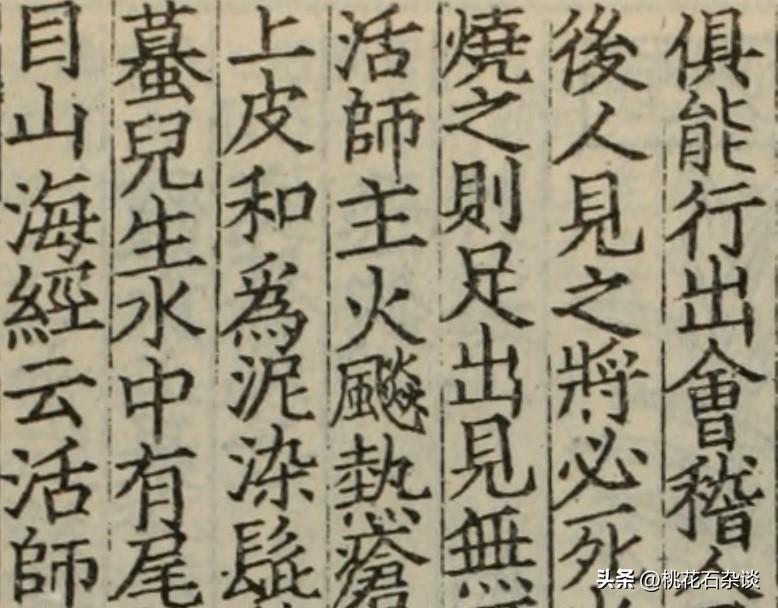 俱能行出會稽
後人見之將必死
燒之則足出見無
活師主火飈熱瘡
上皮和為泥染髭
蟇兒生水中有尾
目山海經云活師
头条 @桃花石杂谈